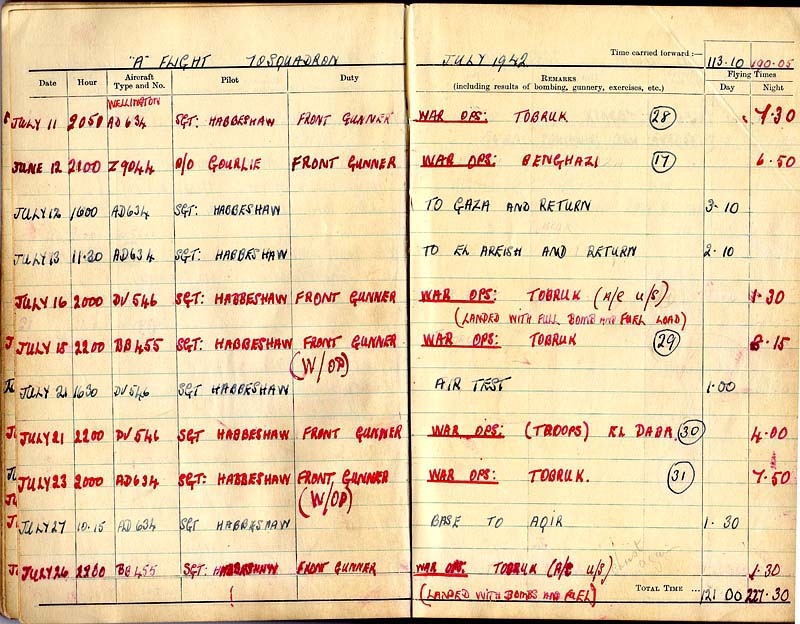 "A" FLIGHT 70 SQUADRON JULY 1942 Time carried forward :— 113.10 190.05
Date Hour Aircraft Type and No. Pilot Duty REMARKS (including results of bombing, gunnery, exercises, etc.) Flying Times Day Night
WELLINGTON
JULY 11 2050 AD634 SGT: HABBESHAW FRONT GUNNER WAR OPS: TOBRUK 28 7.30
JUNE 12 2100 Z9044 P/O GOURLIE FRONT GUNNER WAR OPS: BENGHAZI 17 6.50
JULY 12 1600 AD634 SGT: HABBESHAW TO GAZA AND RETURN 3.10
JULY 13 11.30 AD634 SGT: HABBESHAW TO EL AREISH AND RETURN 2.10
JULY 16 2000 DV546 SGT: HABBESHAW FRONT GUNNER WAR OPS: TOBRUK (A/C U/S) 1.30
(LANDED WITH FULL BOMB AND FUEL LOAD)
JULY 18 2200 BB455 SGT: HABBESHAW FRONT GUNNER WAR OPS: TOBRUK 29 8.15
(W/OP)
JULY 21 1630 DV546 SGT HABBESHAW AIR TEST 1.00
JULY 21 2200 DV546 SGT HABBESHAW FRONT GUNNER WAR OPS: (TROOPS) EL DABA 30 4.00
JULY 23 2000 AD634 SGT: HABBESHAW FRONT GUNNER WAR OPS: TOBRUK. 31 7.50
(W/OP)
JULY 27 10.15 AD634 SGT HABBESHAW BASE TO AQIR 1.30
JULY 26 2200 BB455 SGT: HABBESHAW FRONT GUNNER WAR OPS: TOBRUK (A/C U/S) 1.30
(LANDED WITH BOMBS AND FUEL) TOTAL TIME ... 121.00 227.30